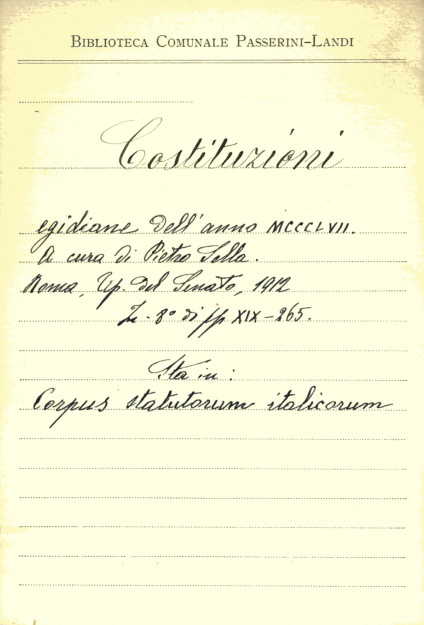 BIBLIOTECA COMUNALE PASSERINI-LANDI
Costituzioni
egidiane dell'anno MCCCLVII.
A cura di Pietro Sella.
Roma, Tip. del Senato, 1912
In-8° di pp XIX-265.
Sta in:
Corpus statutorum italicorum